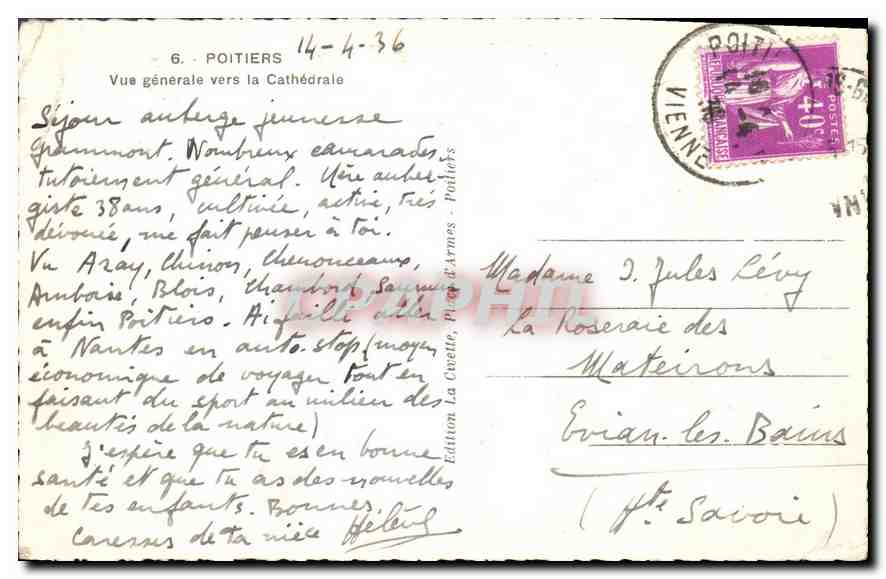 14-4-36
6. - POITIERS
Vue générale vers la Cathédrale
Séjour auberge jeunesse
Grammont. Nombreux camarades,
tutoiement général. Mère auber-
giste 38 ans, cultivée, active, très
dévouée, me fait penser à toi.
Vu Azay, Chinon, Chenonceaux,
Amboise, Blois, Chambord, Saumur
enfin Poitiers. Ai failli aller
à Nantes en auto-stop (moyen
économique de voyager tout en
faisant du sport au milieu des
beautés de la nature)
J'espère que tu es en bonne
santé et que tu as des nouvelles
de tes enfants. Bonnes
caresses de ta nièce Hélène
Edition La Civette, Place d'Armes - Poitiers
CPAPHIL
POITI
VIENNE
REPUBLIQUE FRANÇAISE
40c
POSTES
Madame J. Jules Lévy
La Roseraie des
Mateirons
Evian-les-Bains
(Hte Savoie)